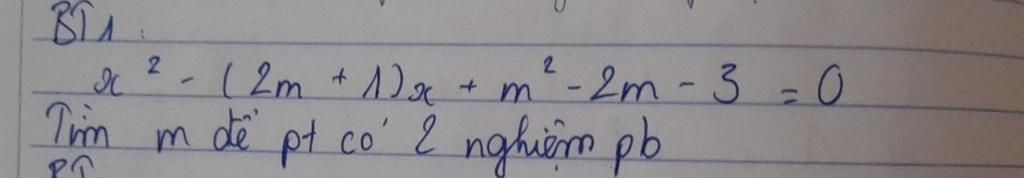 BT1.
x² - (2m + 1)x + m² - 2m - 3 = 0
Tìm m để pt có 2 nghiệm pb